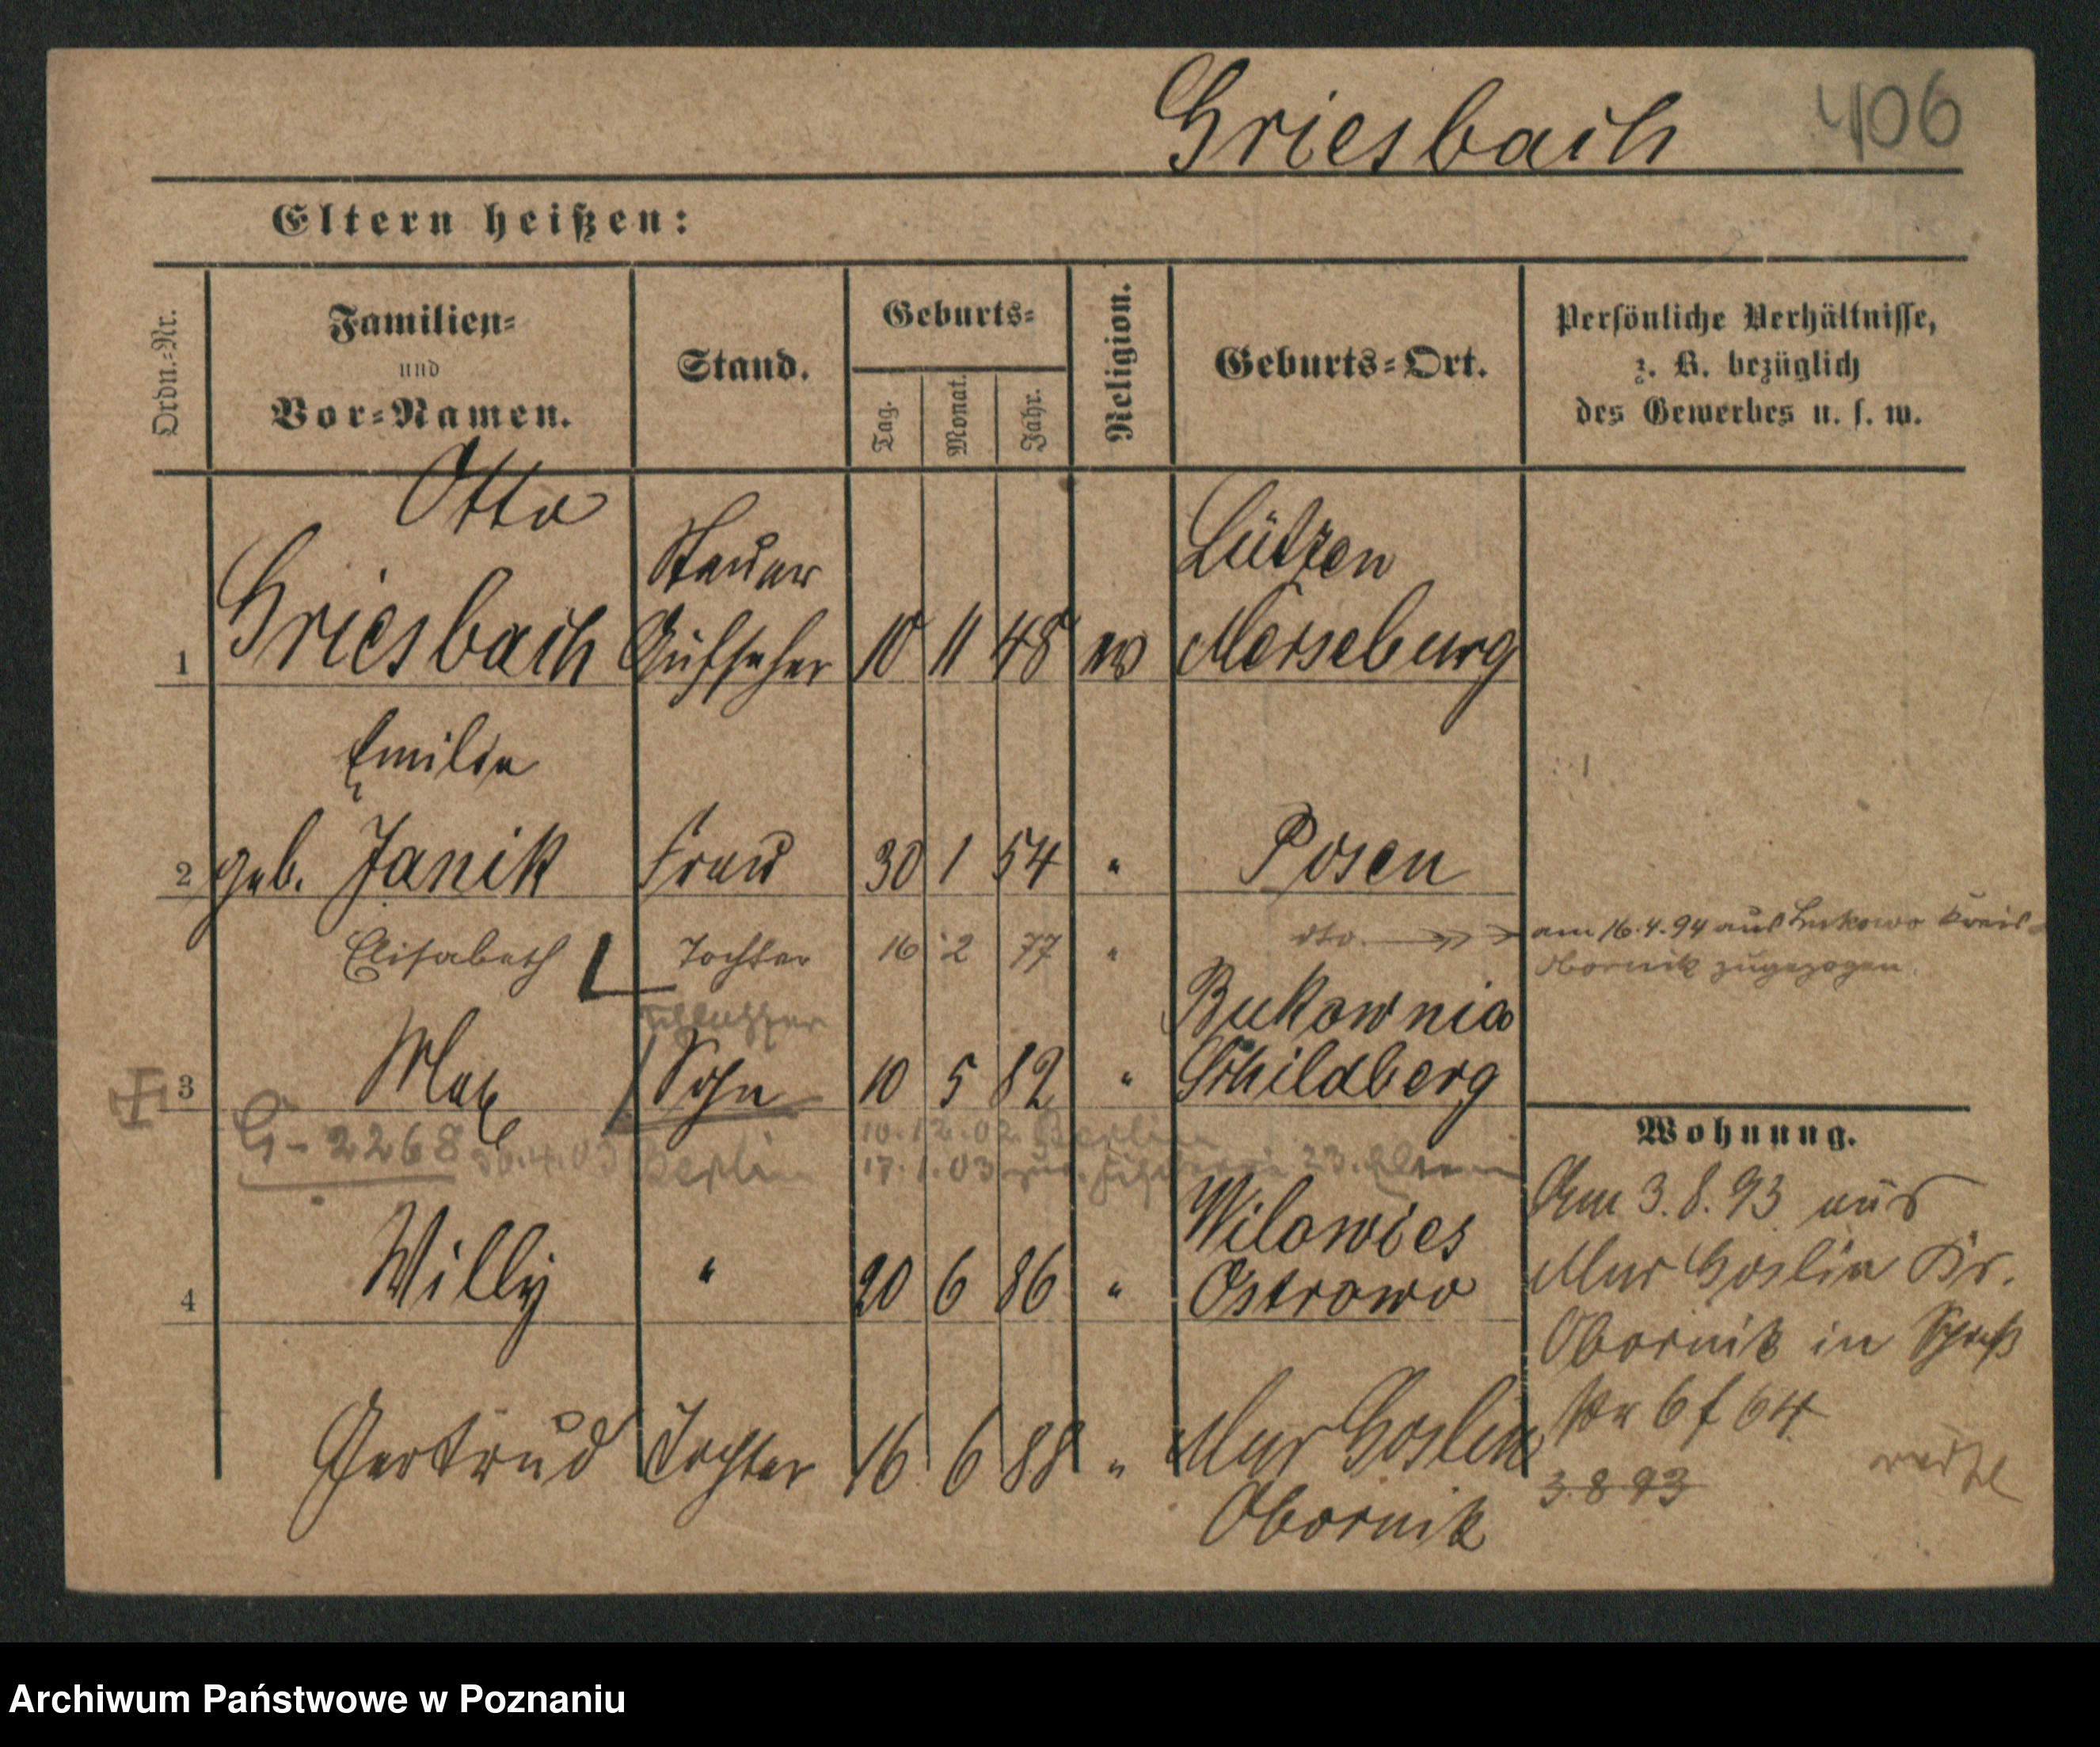 Griesbach 406
Eltern heißen:
Ordn.-Nr.
Familien-
und
Vor-Namen.
Stand.
Geburts-
Tag.
Monat.
Jahr.
Religion.
Geburts-Ort.
Persönliche Verhältnisse,
z. B. bezüglich
des Gewerbes u. s. w.
Otto
Steuer Lützen
1 Griesbach Aufseher 10 11 48 ev Merseburg
Emilie
2 geb. Janik Frau 30 1 54 " Posen
Elisabeth Tochter 16 2 77 " dto. am 16.4.94 aus Lukowo Kreis
Obornik zugezogen.
Bukownia
3 Max Sohn 10 5 82 " Schildberg
10.12.02 Berlin
G-2268 30.4.03 Berlin 17.1.03 23.
Wilowies
4 Willy " 20 6 86 " Ostrowo
Gertrud Tochter 16 6 88 " Mur Goslin
Obornik
Wohnung.
Am 3.8.93 aus
Mur Goslin Kr.
Obornik in
6 f 64
3.8.93
Archiwum Państwowe w Poznaniu